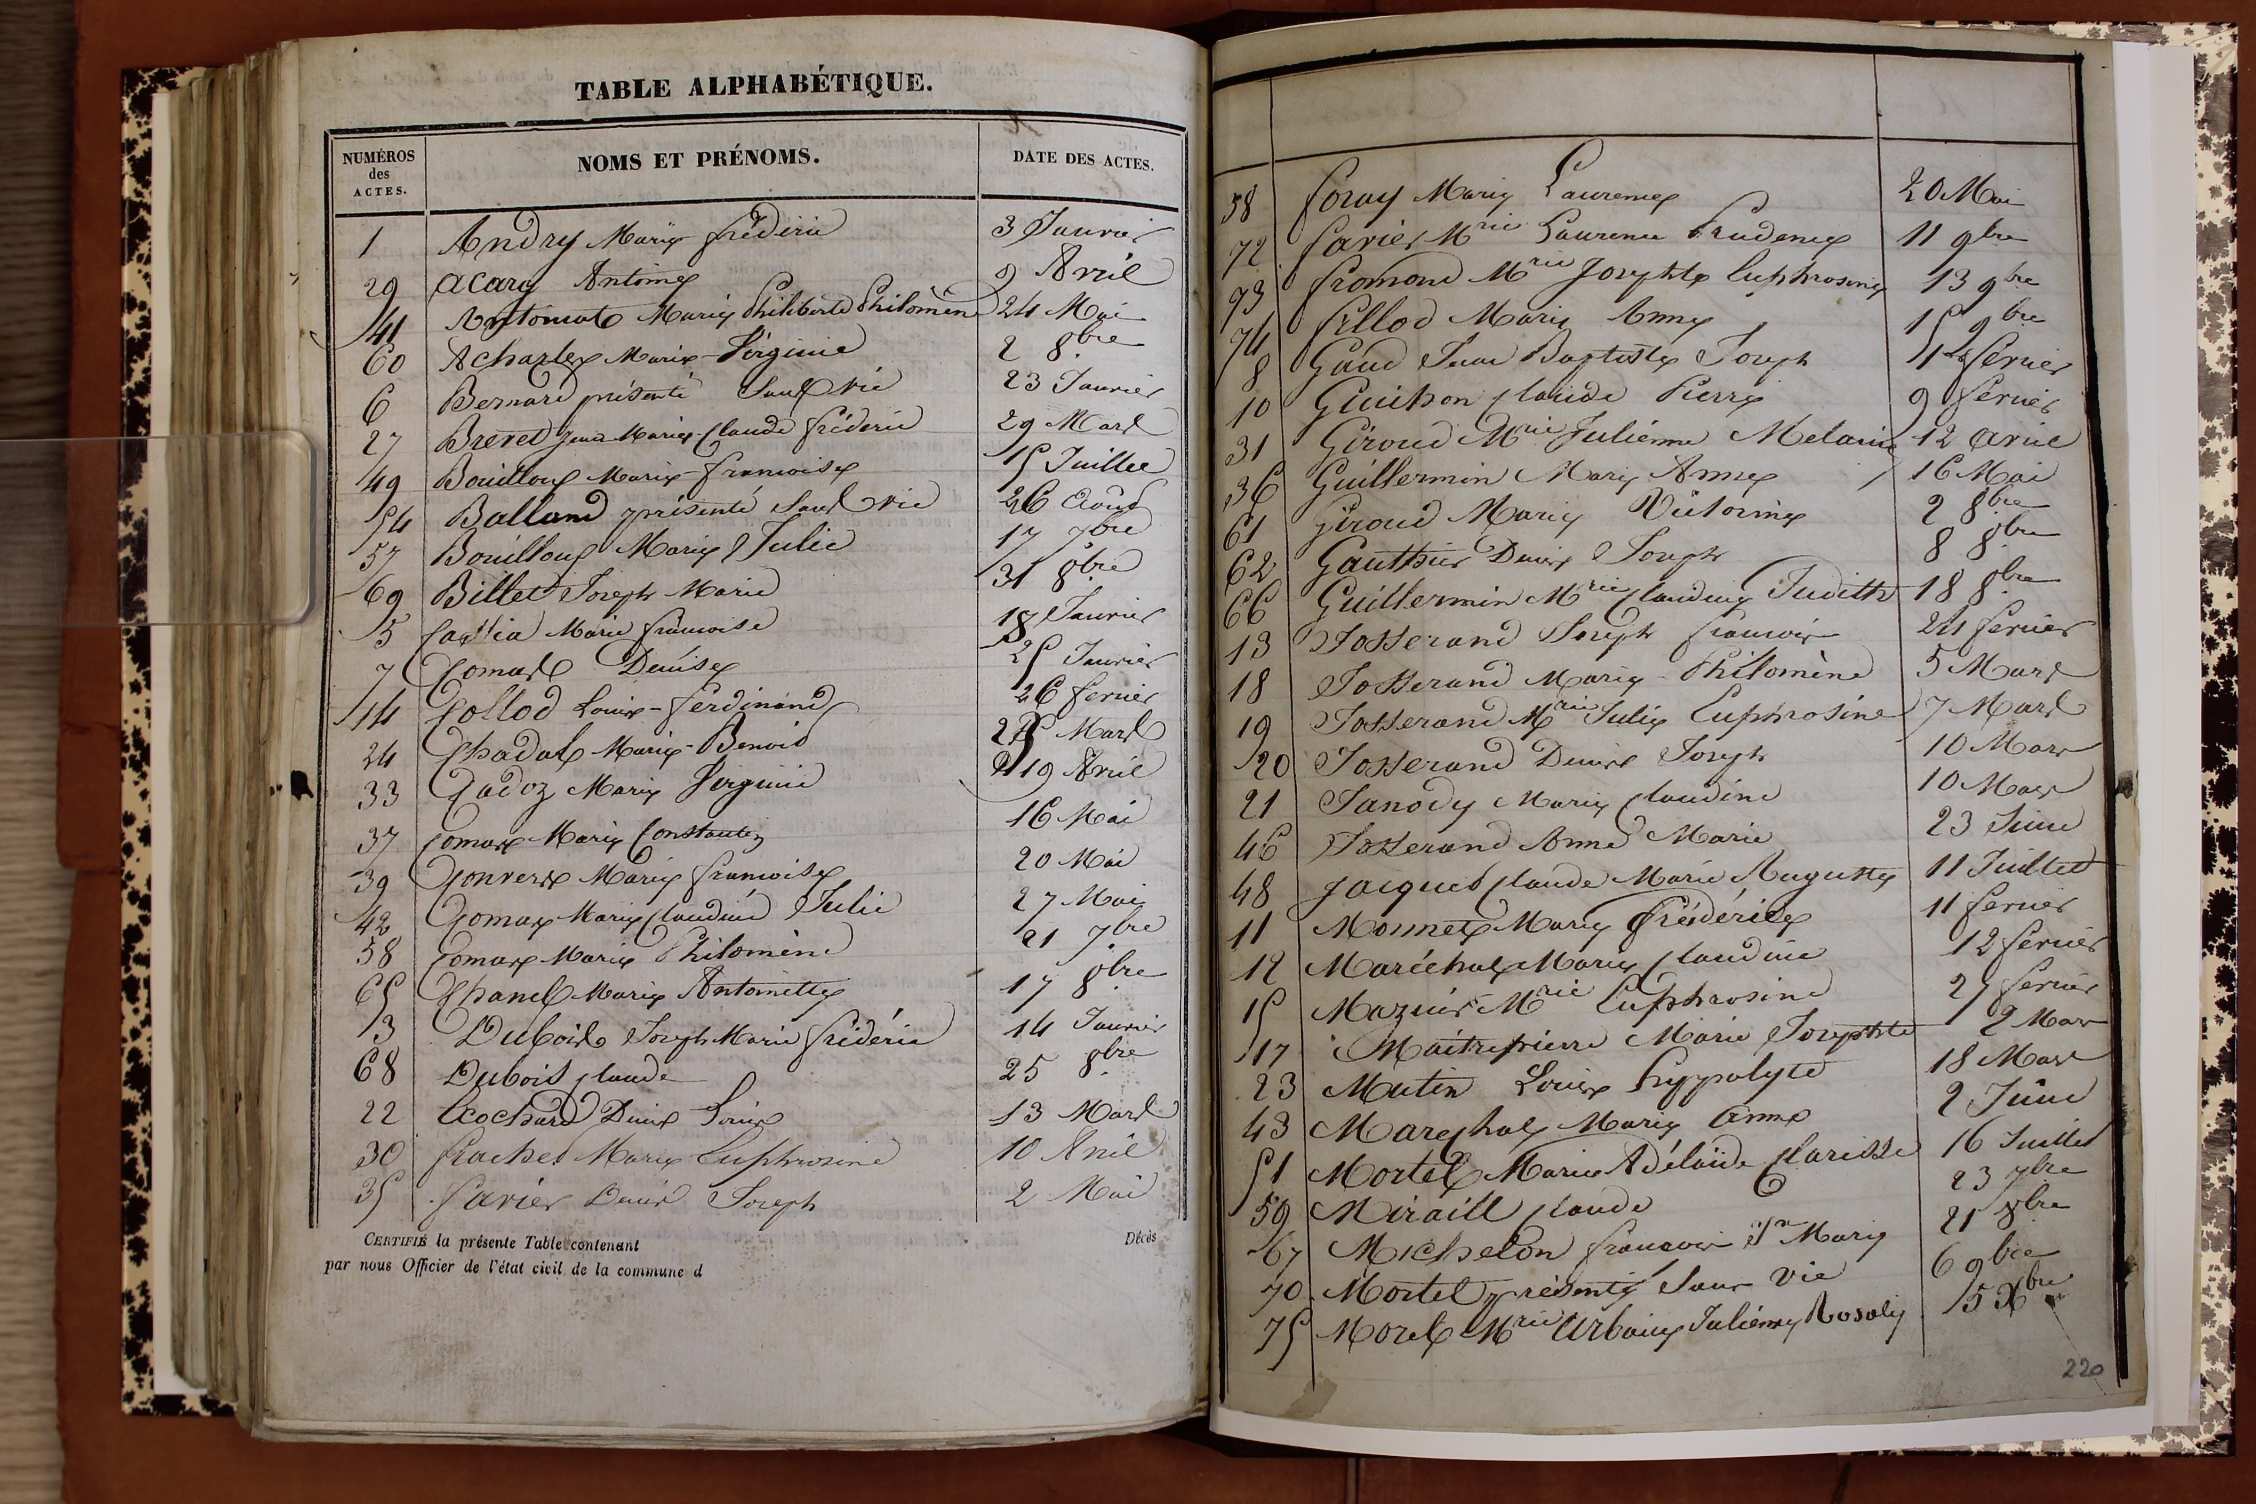 TABLE ALPHABÉTIQUE.
NUMÉROS
des
ACTES.
NOMS ET PRÉNOMS.
DATE DES ACTES.
1 Andry Marie frédéric 3 Janvier
29 acary Antoine 9 Avril
41 Marie Philiberte Philomène 24 Mai
60 Marie Virginie 2 8bre
6 Bernard présenté Sans vie 23 Janvier
27 Brevet Jean Marie Claude frédéric 29 Mars
49 Bouilloux Marie francoise 15 Juillet
54 Balland présenté Sans vie 26 Aout
57 Bouilloux Marie Julie 17 7bre
69 Billet Joseph Marie 31 8bre
5 Marie francoise 18 Janvier
7 Comas Denise 25 Janvier
14 Collod Louis ferdinand 26 fevrier
24 Chadal Marie Benoit 25 Mars
33 Cadoz Marie Virginie 19 Avril
37 Comas Marie Constantin 16 Mai
39 Convers Marie francoise 20 Mai
42 Comas Marie Claudine Julie 27 Mai
58 Comas Marie Philomène 21 7bre
65 Chanel Marie Antoinette 17 8bre
3 Dubois Joseph Marie frédéric 14 Janvier
68 Dubois Claude 25 8bre
22 Ecochard Denis Louis 13 Mars
30 Marie Euphrosine 10 Avril
35 favier Denis Joseph 2 Mai
CERTIFIÉ la présente Table contenant Décès
par nous Officier de l'état civil de la commune d
38 foray Marie Laurence 20 Mai
72 favier Mrie Laurence Prudence 11 9bre
73 fromond Mrie Josephte Euphrosine 13 9bre
74 fillod Marie Anne 15 9bre
8 Gaud Jean Baptiste Joseph 1er fevrier
10 Guichon Claude Pierre 9 fevrier
31 Giroud Mrie Julienne Melanie 12 avril
36 Guillermin Marie Anne 16 Mai
61 Giroud Marie Victorine 2 8bre
62 Gauthier Denis Joseph 8 8bre
66 Guillermin Mrie Claudine Judith 18 8bre
13 Josserand Joseph francois 24 fevrier
18 Josserand Marie Philomène 5 Mars
19 Josserand Mrie Julie Euphrosine 7 Mars
20 Josserand Denis Joseph 10 Mars
21 Janody Marie Claudine 10 Mars
46 Josserand Anne Marie 23 Juin
48 Jacquet Claude Marie Auguste 11 Juillet
11 Monnet Marie frédéric 11 fevrier
12 Maréchal Marie Claudine 12 fevrier
15 Mazuir Mrie Euphrosine 27 fevrier
17 Maitrepierre Marie Josephte 2 Mars
23 Mutin Louis hyppolyte 18 Mars
43 Marechal Marie anne 2 Juin
51 Mortel Marie Adélaïde Clarisse 16 Juillet
59 Miraill Claude 23 7bre
67 Michelon francois Jn Marie 21 8bre
70 Mortel présenté Sans vie 6 9bre
75 Morel Mrie Urbaine Julienne Rosalie 5 Xbre
220